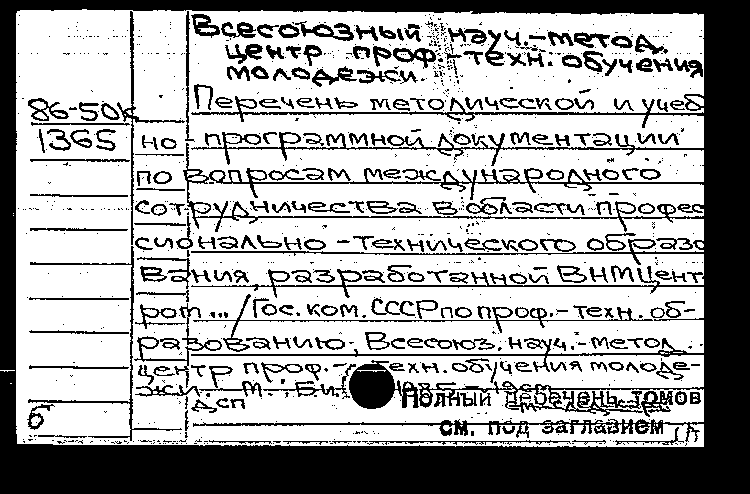 Всесоюзный науч.-метод.
центр проф.-техн. обучения
молодежи.
86-50к
1365
Перечень методической и учеб
но-программной документации
по вопросам международного
сотрудничества в области профес
сионально-технического образо
вания, разработанной ВНМЦент-
ром... / Гос. ком. СССР по проф.-техн. об-
разованию, Всесоюз. науч.-метод.
центр проф.-техн. обучения молоде-
жи. М.,
ДСП
Полный перечень томов
см. под заглавием
б